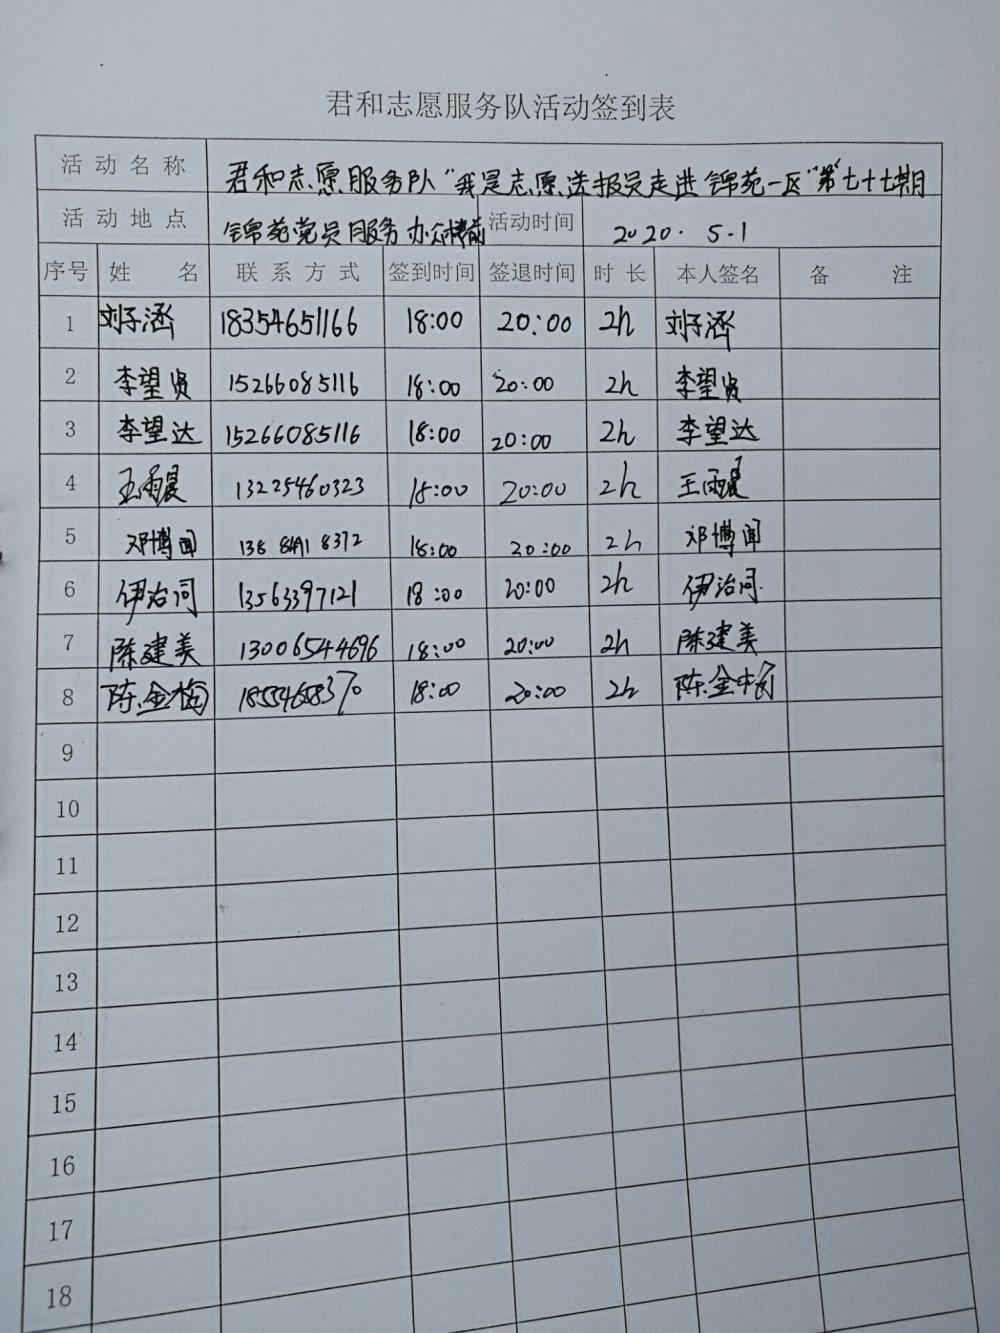 君和志愿服务队活动签到表
活动名称 君和志愿服务队“我是志愿送报员走进锦苑一区”第七十七期
活动地点 锦苑党员服务 活动时间 2020.5.1
序号 姓名 联系方式 签到时间 签退时间 时长 本人签名 备注
1 刘子涵 18354651166 18:00 20:00 2h 刘子涵
2 李望贤 15266085116 18:00 20:00 2h 李望贤
3 李望达 15266085116 18:00 20:00 2h 李望达
4 王雨晨 13225460323 18:00 20:00 2h 王雨晨
5 邓博闻 18:00 20:00 2h 邓博闻
6 伊治同 13563397121 18:00 20:00 2h 伊治同
7 陈建美 13006544696 18:00 20:00 2h 陈建美
8 陈金梅 18:00 20:00 2h 陈金梅
9
10
11
12
13
14
15
16
17
18